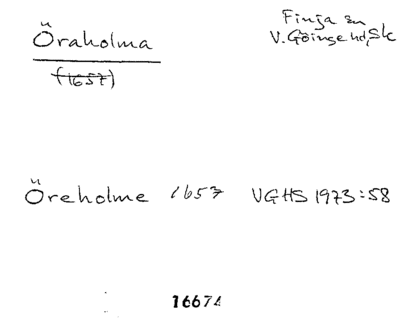 Öraholma
Finja sn
V. Göinge hd, Sk
(1657)
Öreholme 1657 VGHS 1973:58
16674